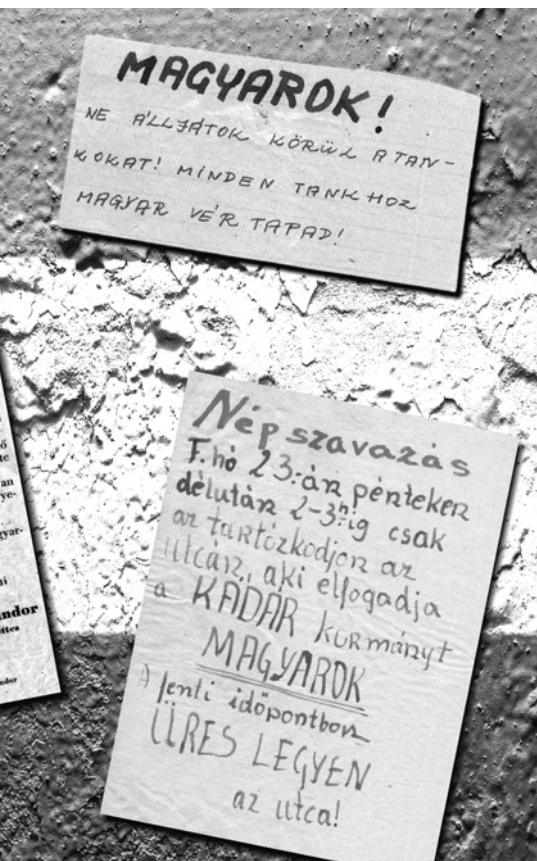 MAGYAROK!
NE ÁLLJÁTOK KÖRÜL A TAN-
KOKAT! MINDEN TANKHOZ
MAGYAR VÉR TAPAD!
Népszavazás
F. hó 23.-án pénteken
délután 2-3h-ig csak
az tartózkodjon az
utcán, aki elfogadja
a KADAR kormányt
MAGYAROK
A fenti időpontban
ÜRES LEGYEN
az utca!